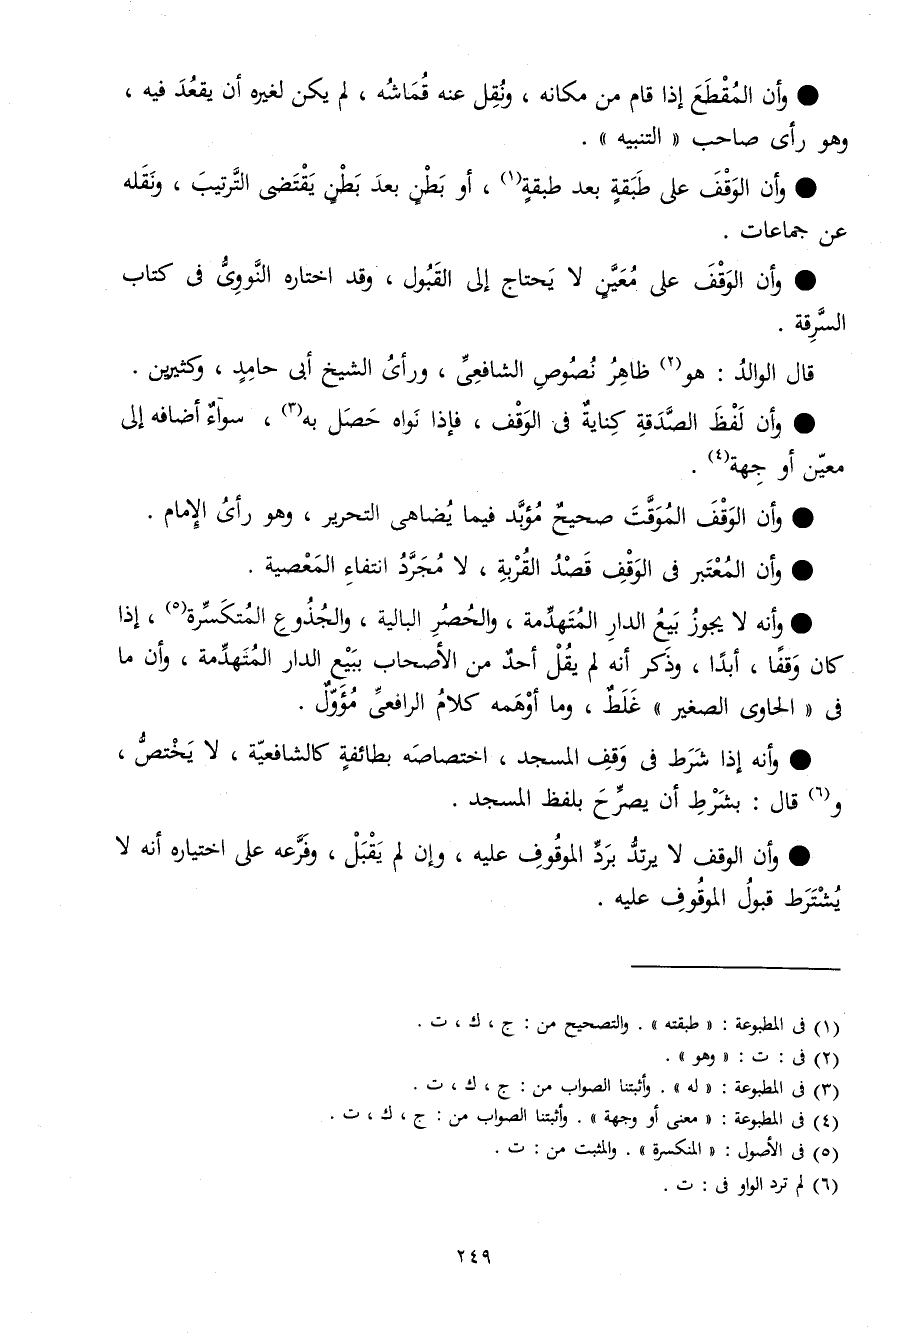 ● وأن المُقْطَعَ إذا قام من مكانه ، ونُقِل عنه قُمَاشُه ، لم يكن لغيره أن يقعُدَ فيه ،
وهو رأى صاحب « التنبيه » .
● وأن الوَقْفَ على طَبَقةٍ بعد طبقةٍ(١) ، أو بَطْنٍ بعدَ بَطْنٍ يَقْتَضى التَّرتيبَ ، ونَقَله
عن جماعات .
● وأن الوَقْفَ على مُعَيَّنٍ لا يَحتاج إلى القَبُول ، وقد اختاره النَّووِىُّ فى كتاب
السَّرِقة .
قال الوالدُ : هو(٢) ظاهِرُ نُصُوصِ الشافعِىِّ ، ورأىُ الشيخ أبى حامِدٍ ، وكثيرين .
● وأن لَفْظَ الصَّدَقةِ كِنايةٌ فى الوَقْف ، فإذا نَواه حَصَل به(٣) ، سوآءٌ أضافه إلى
معيّن أو جِهة(٤) .
● وأن الوَقْفَ المُوَقَّتَ صحيحٌ مُؤبَّد فيما يُضاهى التحرير ، وهو رأىُ الإمام .
● وأن المُعْتَبر فى الوَقْفِ قَصْدُ القُرْبةِ ، لا مُجَرَّدُ انتفاءِ المَعْصية .
● وأنه لا يجوزُ بَيعُ الدارِ المُتَهدِّمة ، والحُصُرِ البالية ، والجُذُوعِ المُتكَسِّرة(٥) ، إذا
كان وَقفًا ، أبدًا ، وذَكر أنه لم يقُلْ أحدٌ من الأصحاب ببَيْع الدار المُتَهدِّمة ، وأن ما
فى « الحاوى الصغير » غَلَطٌ ، وما أوْهَمه كلامُ الرافعىِّ مُؤَوّلٌ .
● وأنه إذا شَرَط فى وَقفِ المسجد ، اختصاصَه بطائفةٍ كالشافعيّة ، لا يَخْتصُّ ،
و(٦) قال : بشَرْطِ أن يصرِّحَ بلفظ المسجد .
● وأن الوقف لا يرتدُّ برَدِّ الموقُوفِ عليه ، وإن لم يَقْبَلْ ، وفَرَّعه على اختياره أنه لا
يُشْتَرَط قبولُ الموقُوفِ عليه .
(١) فى المطبوعة : « طبقته » . والتصحيح من : ج ، ك ، ت .
(٢) فى : ت : « وهو » .
(٣) فى المطبوعة : « له » . وأثبتنا الصواب من : ج ، ك ، ت .
(٤) فى المطبوعة : « معنى أو وجهة » . وأثبتنا الصواب من : ج ، ك ، ت .
(٥) فى الأصول : « المنكسرة » . والمثبت من : ت .
(٦) لم ترد الواو فى : ت .
٢٤٩